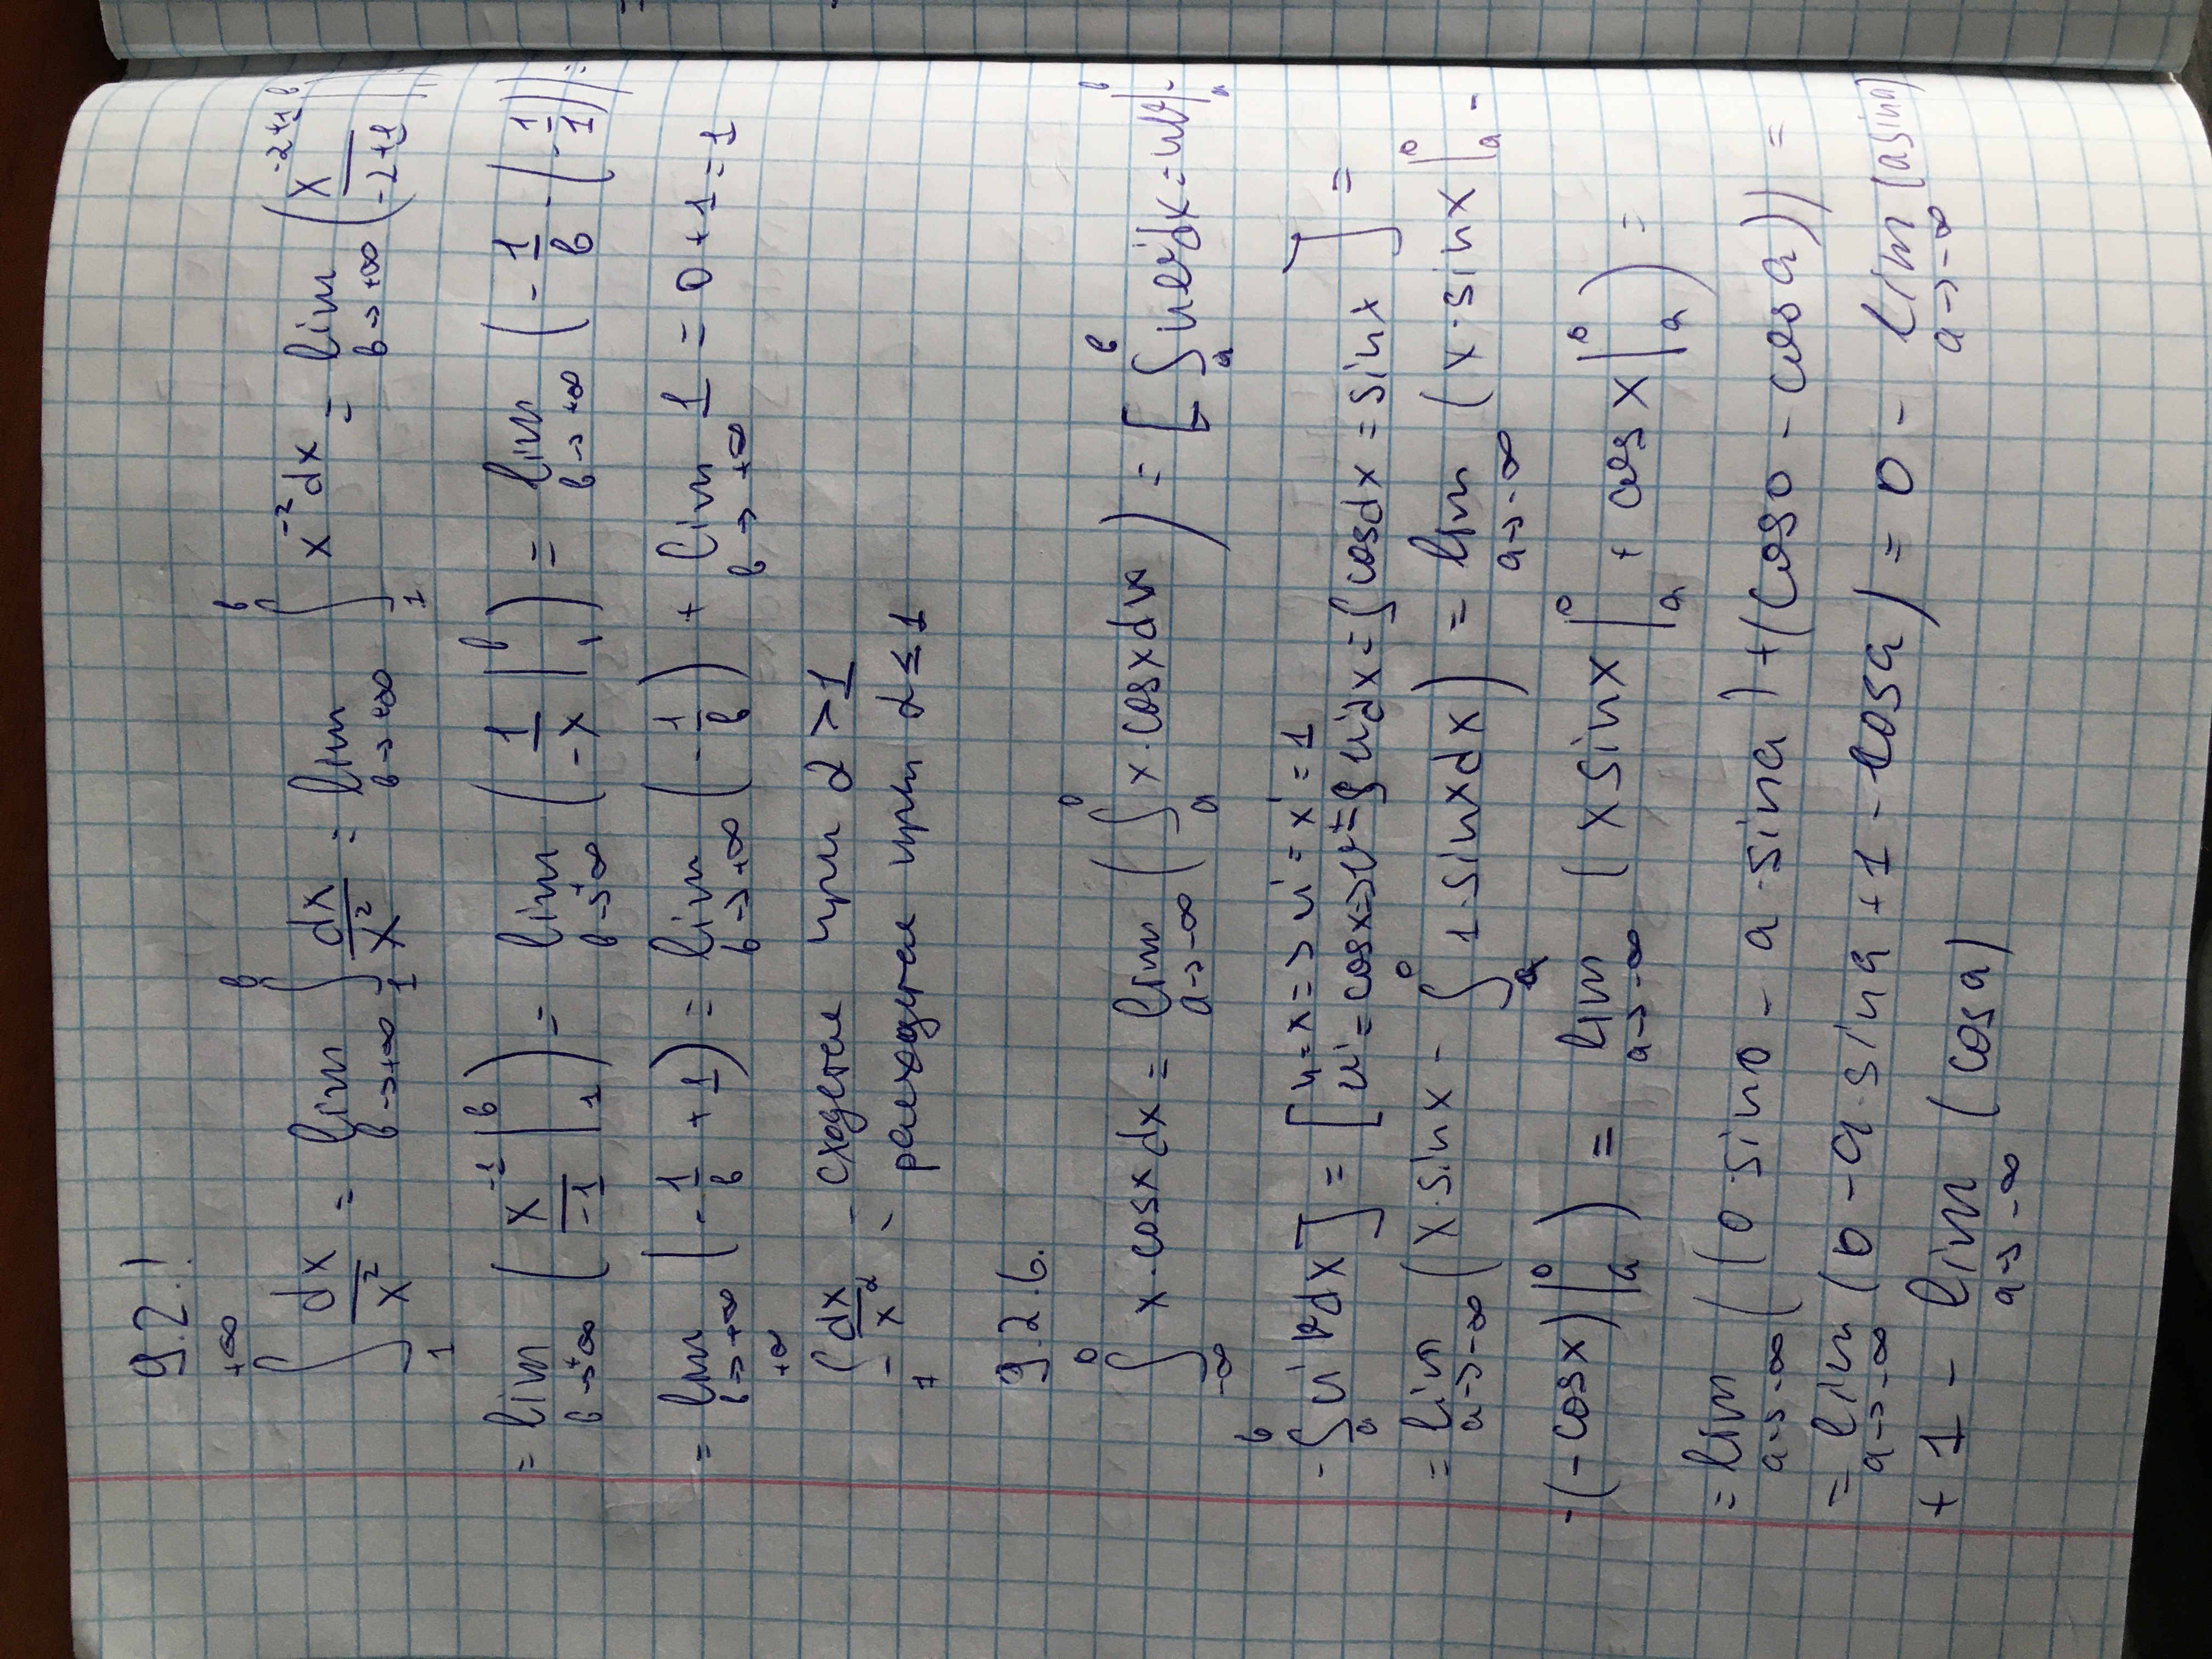 9.2.!
∫₁^{+∞} dx/x² = lim_{b→+∞} ∫₁^b dx/x² = lim_{b→+∞} ∫₁^b x⁻² dx = lim_{b→+∞} (x^{-2+1}/(-2+1) |₁^b
= lim_{b→+∞} (x⁻¹/-1 |₁^b) = lim_{b→+∞} (1/-x |₁^b) = lim_{b→+∞} (-1/b - (-1/1)) =
= lim_{b→+∞} (-1/b + 1) = lim_{b→+∞} (-1/b) + lim_{b→+∞} 1 = 0 + 1 = 1
∫₁^{+∞} dx/x^α - сходется при α > 1
- расходется при α ≤ 1
9.2.6.
∫_{-∞}^0 x·cosx dx = lim_{a→-∞} (∫_a^0 x·cosx dx) = [∫_a^b uv'dx = uv|_a^b -
- ∫_a^b u'v dx] = [u = x => u' = x' = 1
v' = cosx => v = ∫v'dx = ∫cosdx = sinx] =
= lim_{a→-∞} (x·sinx - ∫_a^0 1·sinxdx) = lim_{a→-∞} (x·sinx |_a^0 -
-(-cosx)|_a^0) = lim_{a→-∞} (x sinx |_a^0 + cos x |_a^0) =
= lim_{a→-∞} ((0·sin0 - a·sina) + (cos0 - cosa)) =
= lim_{a→-∞} (0 - a·sina + 1 - cosa) = 0 - lim_{a→-∞} (asina)
+ 1 - lim_{a→-∞} (cosa)